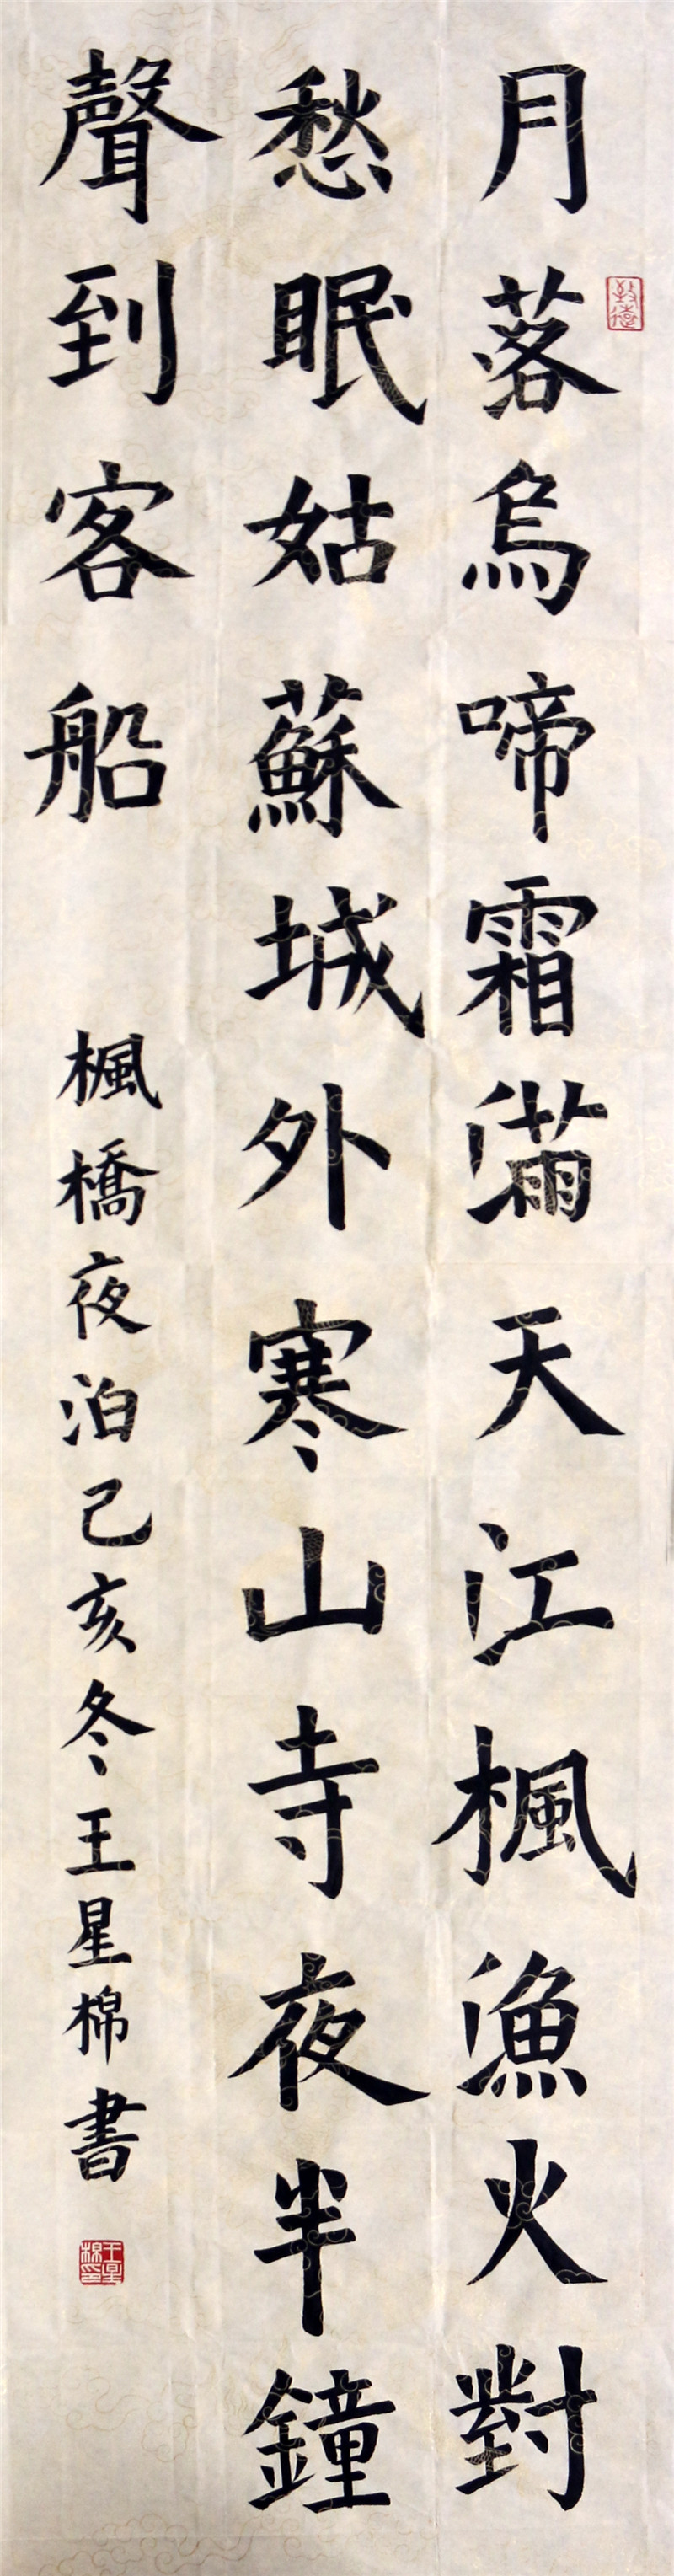 月落烏啼霜滿天江楓漁火對
愁眠姑蘇城外寒山寺夜半鐘
聲到客船
楓橋夜泊己亥冬王星棉書
王星棉印